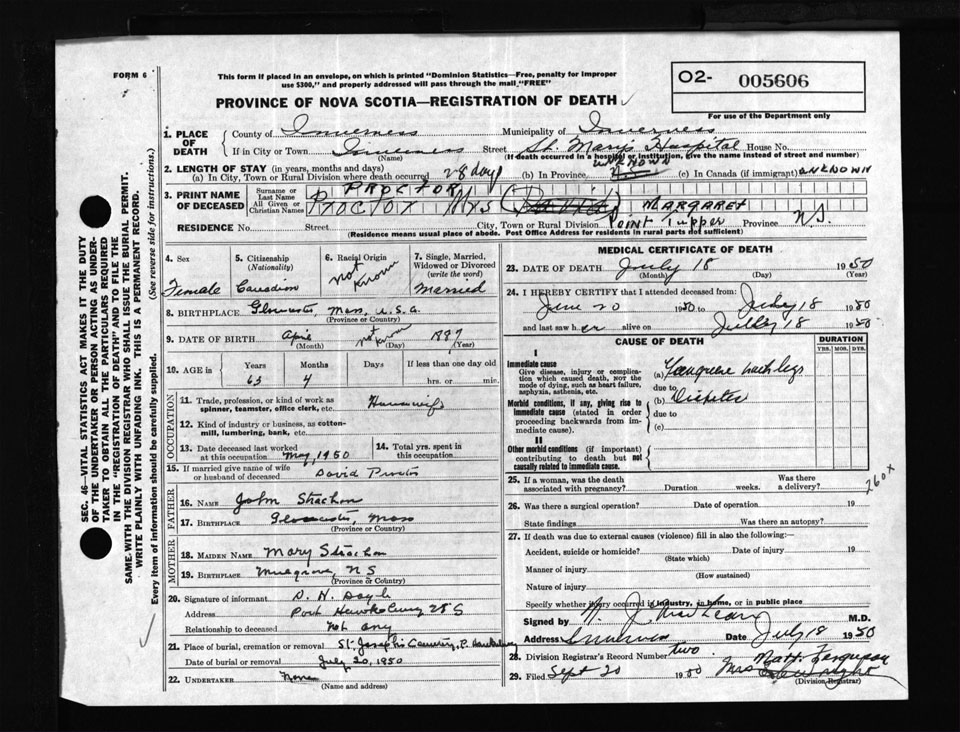 FORM 6
This form if placed in an envelope, on which is printed "Dominion Statistics—Free, penalty for improper
use $300," and properly addressed will pass through the mail "FREE"
O2- 005606
For use of the Department only
PROVINCE OF NOVA SCOTIA—REGISTRATION OF DEATH
1. PLACE OF DEATH
County of Inverness Municipality of Inverness
If in City or Town Inverness Street St. Mary's Hospital House No.
(Name) (If death occurred in a hospital or institution, give the name instead of street and number)
2. LENGTH OF STAY (in years, months and days)
(a) In City, Town or Rural Division where death occurred 28 days (b) In Province UNKNOWN (c) In Canada (if immigrant) UNKNOWN
3. PRINT NAME OF DECEASED
Surname or Last Name PROCTOR
All Given or Christian Names Proctor Mrs MARGARET
RESIDENCE No. Street City, Town or Rural Division Point Tupper Province N.S.
(Residence means usual place of abode. Post Office Address for residents in rural parts not sufficient)
4. Sex Female
5. Citizenship (Nationality) Canadian
6. Racial Origin not known
7. Single, Married, Widowed or Divorced (write the word) Married
8. BIRTHPLACE Gloucester Mass, U.S.A.
(Province or Country)
9. DATE OF BIRTH April not known 1887
(Month) (Day) (Year)
10. AGE in Years 63 Months 4 Days If less than one day old hrs. or min.
OCCUPATION
11. Trade, profession, or kind of work as spinner, teamster, office clerk, etc. Housewife
12. Kind of industry or business, as cotton-mill, lumbering, bank, etc.
13. Date deceased last worked at this occupation May, 1950
14. Total yrs. spent in this occupation
15. If married give name of wife or husband of deceased David Proctor
FATHER
16. NAME John Strachan
17. BIRTHPLACE Gloucester, Mass
(Province or Country)
MOTHER
18. MAIDEN NAME Mary Strachan
19. BIRTHPLACE Mulgrave, N S
(Province or Country)
20. Signature of informant D. H. Doyle
Address Port Hawkesbury
Relationship to deceased not any
21. Place of burial, cremation or removal St. Joseph's Cemetery, P. Hawkesbury
Date of burial or removal July 20, 1950
22. UNDERTAKER None
(Name and address)
MEDICAL CERTIFICATE OF DEATH
23. DATE OF DEATH July 18 1950
(Month) (Day) (Year)
24. I HEREBY CERTIFY that I attended deceased from:
June 20 1950 to July 18 1950
and last saw her alive on July 18 1950
CAUSE OF DEATH
DURATION
YRS. MOS. DYS.
I
Immediate cause
Give disease, injury or complication which caused death, NOT the mode of dying, such as heart failure, asphyxia, asthenia, etc.
(a) Gangrene both legs
due to
Morbid conditions, if any, giving rise to immediate cause (stated in order proceeding backwards from immediate cause).
(b) Diabetes
due to
(c)
II
Other morbid conditions (if important) contributing to death but not causally related to immediate cause.
260x
25. If a woman, was the death associated with pregnancy? Duration weeks. Was there a delivery?
26. Was there a surgical operation? Date of operation 19
State findings Was there an autopsy?
27. If death was due to external causes (violence) fill in also the following:
Accident, suicide or homicide? Date of injury 19
(State which)
Manner of injury
(How sustained)
Nature of injury
Specify whether injury occurred in industry, in home, or in public place
Signed by N. J. MacLean M.D.
Address Inverness Date July 18 1950
28. Division Registrar's Record Number two
29. Filed Sept 20 1950 Mrs Matt. Ferguson
(Division Registrar)
SEC. 46—VITAL STATISTICS ACT MAKES IT THE DUTY
OF THE UNDERTAKER OR PERSON ACTING AS UNDERTAKER
TO OBTAIN ALL THE PARTICULARS REQUIRED
IN THE "REGISTRATION OF DEATH" AND TO FILE THE
SAME WITH THE DIVISION REGISTRAR WHO SHALL ISSUE THE BURIAL PERMIT.
WRITE PLAINLY WITH UNFADING INK. THIS IS A PERMANENT RECORD.
Every item of information should be carefully supplied. (See reverse side for instructions.)